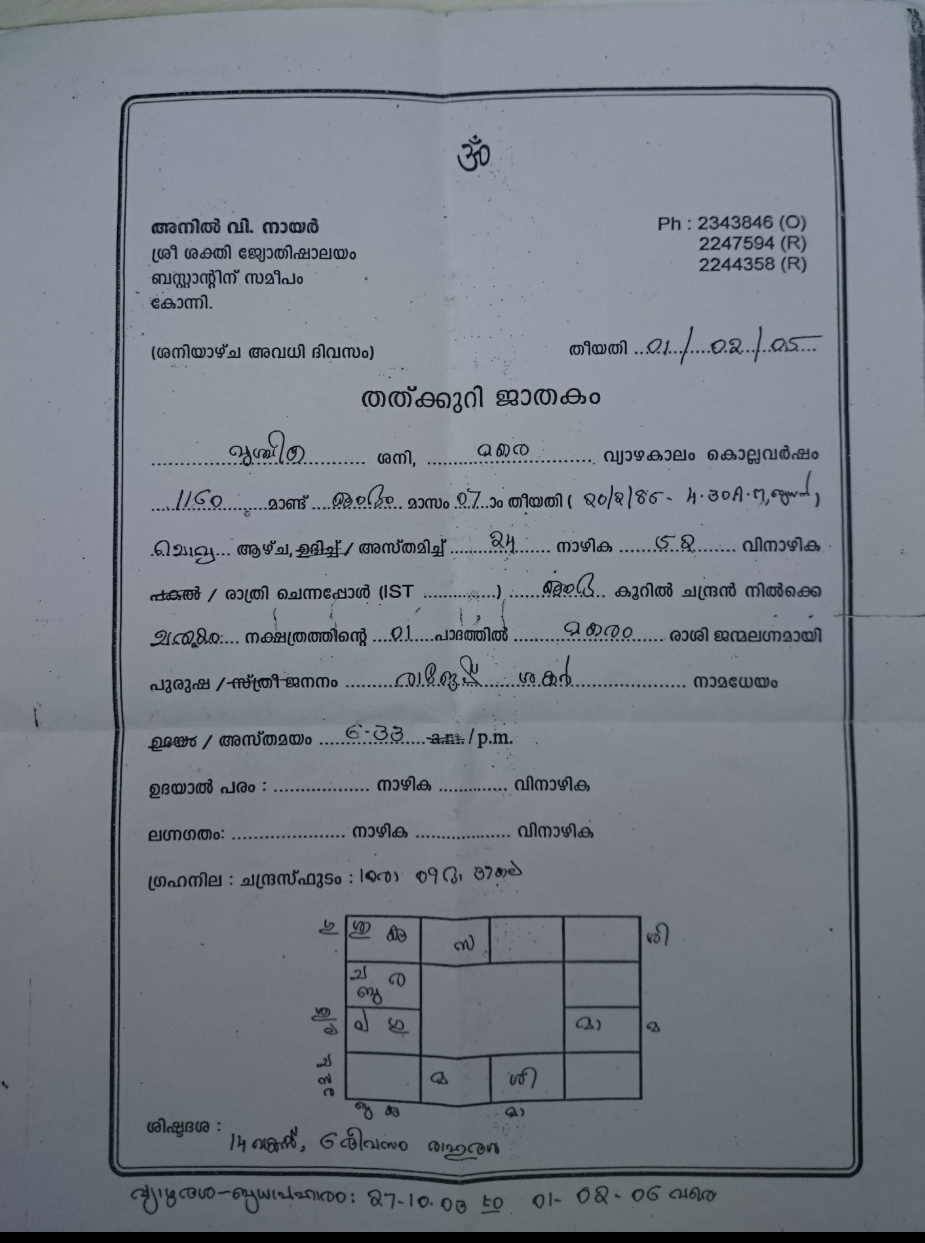 ॐ
അനിൽ വി. നായർ
ശ്രീ ശക്തി ജ്യോതിഷാലയം
ബസ്റ്റാന്റിന് സമീപം
കോന്നി.
Ph : 2343846 (O)
2247594 (R)
2244358 (R)
(ശനിയാഴ്ച അവധി ദിവസം) തീയതി ...01/....02../..05...
തത്ക്കുറി ജാതകം
ശനി, മകര വ്യാഴകാലം കൊല്ലവർഷം
1160 മാണ്ട് കുംഭം മാസം 07 ാം തീയതി ( 20/2/85 - 4.30A.M,
ചൊവ്വ ആഴ്ച, ഉദിച്ച് / അസ്തമിച്ച് 24 നാഴിക 52 വിനാഴിക
പകൽ / രാത്രി ചെന്നപ്പോൾ (IST ................) കുംഭ കൂറിൽ ചന്ദ്രൻ നിൽക്കെ
നക്ഷത്രത്തിന്റെ 01 പാദത്തിൽ മകരം രാശി ജന്മലഗ്നമായി
പുരുഷ / സ്ത്രീ ജനനം നാമധേയം
ഉദയം / അസ്തമയം 6-33 a.m. / p.m.
ഉദയാൽ പരം : ................... നാഴിക ............. വിനാഴിക
ലഗ്നഗതം: ...................... നാഴിക ................... വിനാഴിക
ഗ്രഹനില : ചന്ദ്രസ്ഫുടം :
ശു കു സ ശി
ച ര
ബു
ല ഗു മാ മ
മ ശി
ബു കു മാ
ശിഷ്ടദശ :
14 വർഷം, 6 ദിവസം രാഹുദശ
വ്യാഴദശ-ബുധാപഹാരം: 27-10-03 01-02-06 വരെ